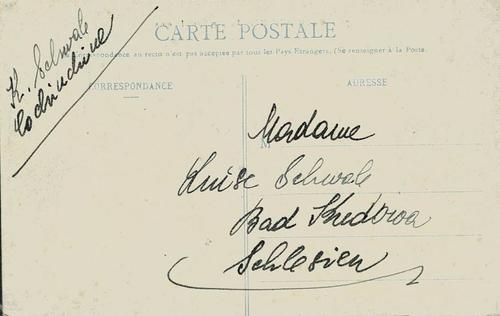 K. Schwale
Cochinchine
CARTE POSTALE
correspondance au recto n'est pas acceptée par tous les Pays Etrangers. (Se renseigner à la Poste.
CORRESPONDANCE
ADRESSE
M
Madame
Luise Schwale
Bad Kudowa
Schlesien